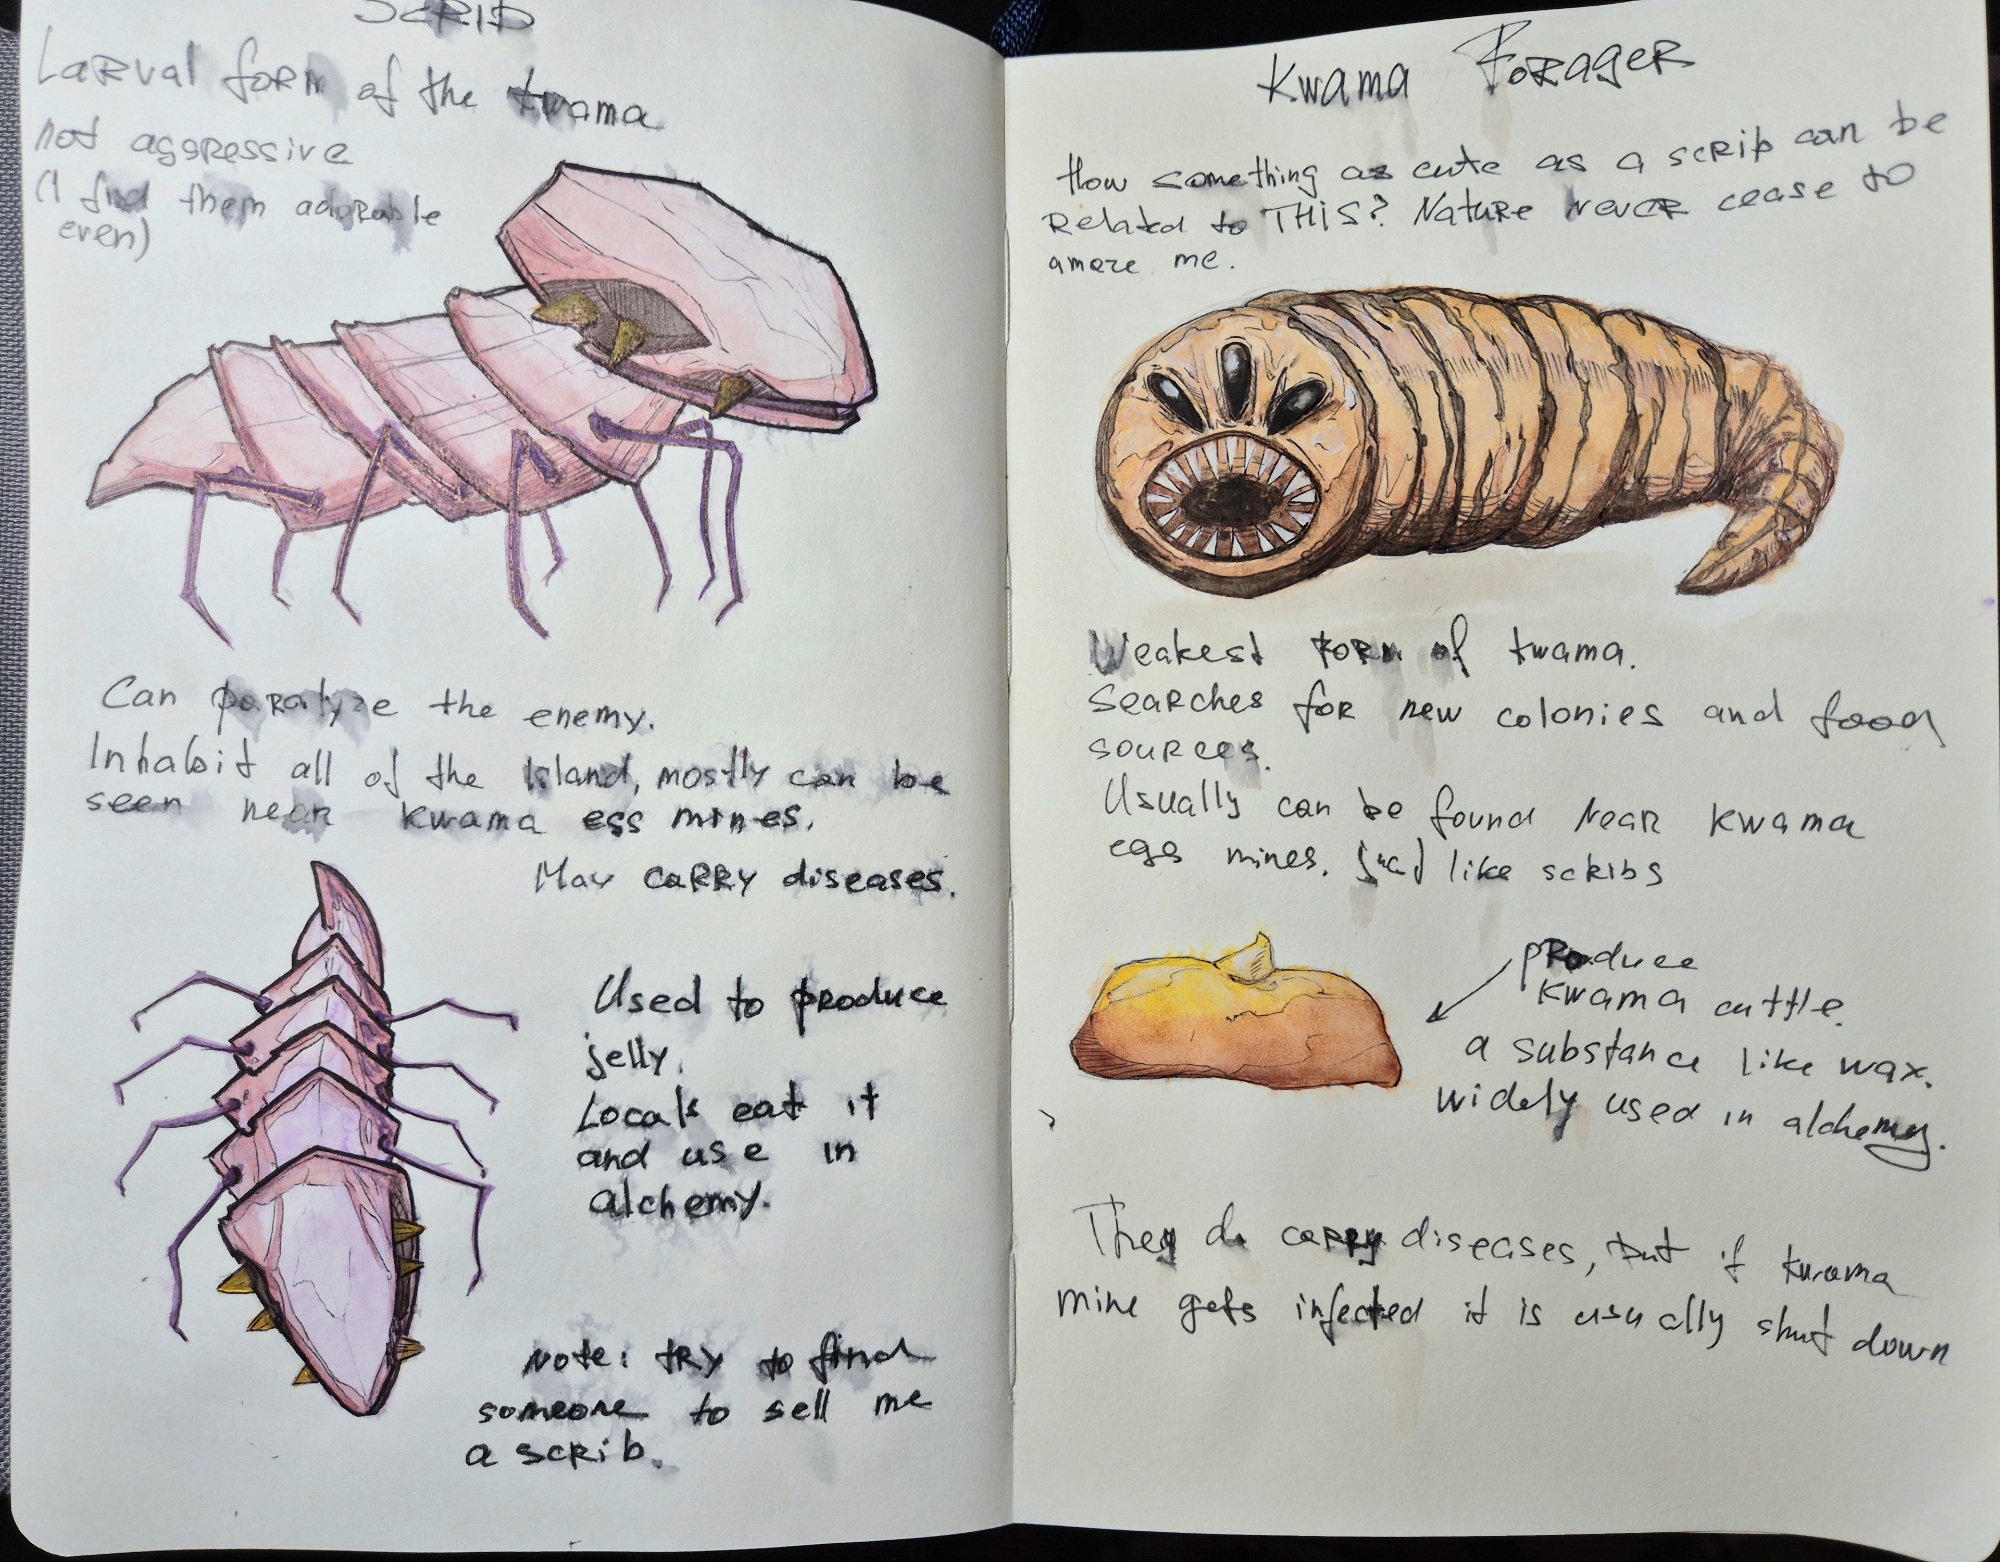 Scrib
Larval form of the kwama
not aggressive
(I find them adorable
even)
Can paralyze the enemy.
Inhabit all of the Island, mostly can be
seen near kwama egg mines.
May carry diseases.
Used to produce
jelly.
Locals eat it
and use in
alchemy.
Note: try to find
someone to sell me
a scrib.
Kwama Forager
How something as cute as a scrib can be
related to THIS? Nature never cease to
amaze me.
Weakest form of kwama.
Searches for new colonies and food
sources.
Usually can be found near kwama
egg mines. Just like scribs
produce
kwama cuttle.
a substance like wax.
widely used in alchemy.
They do carry diseases, but if kwama
mine gets infected it is usually shut down